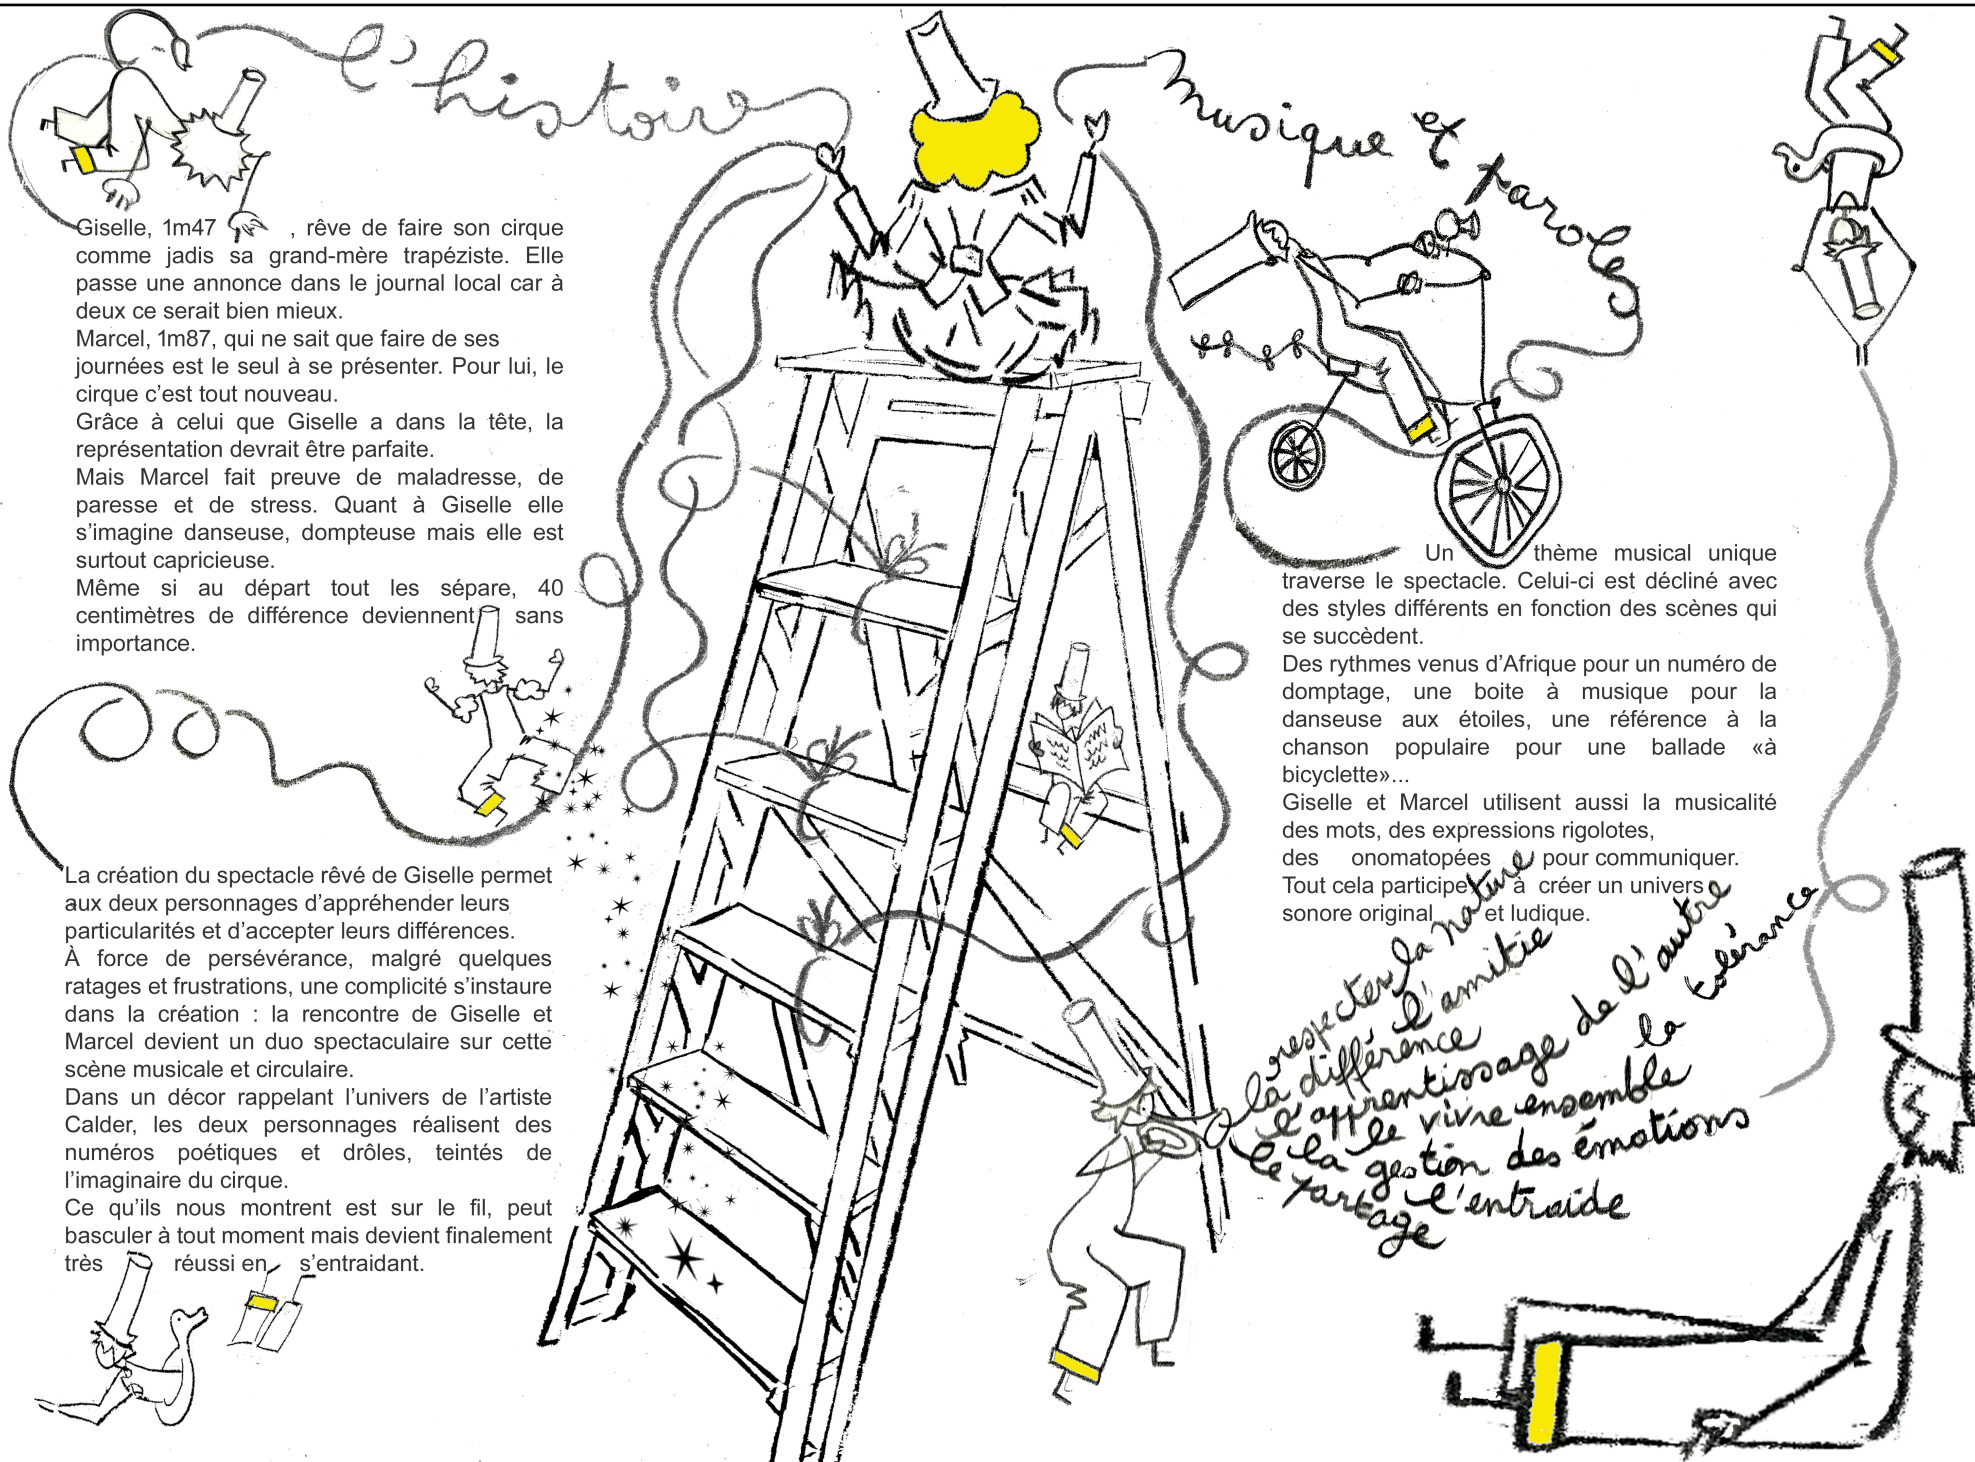 l'histoire
Giselle, 1m47 , rêve de faire son cirque
comme jadis sa grand-mère trapéziste. Elle
passe une annonce dans le journal local car à
deux ce serait bien mieux.
Marcel, 1m87, qui ne sait que faire de ses
journées est le seul à se présenter. Pour lui, le
cirque c’est tout nouveau.
Grâce à celui que Giselle a dans la tête, la
représentation devrait être parfaite.
Mais Marcel fait preuve de maladresse, de
paresse et de stress. Quant à Giselle elle
s’imagine danseuse, dompteuse mais elle est
surtout capricieuse.
Même si au départ tout les sépare, 40
centimètres de différence deviennent sans
importance.
La création du spectacle rêvé de Giselle permet
aux deux personnages d’appréhender leurs
particularités et d’accepter leurs différences.
À force de persévérance, malgré quelques
ratages et frustrations, une complicité s’instaure
dans la création : la rencontre de Giselle et
Marcel devient un duo spectaculaire sur cette
scène musicale et circulaire.
Dans un décor rappelant l’univers de l’artiste
Calder, les deux personnages réalisent des
numéros poétiques et drôles, teintés de
l’imaginaire du cirque.
Ce qu’ils nous montrent est sur le fil, peut
basculer à tout moment mais devient finalement
très réussi en s’entraidant.
musique et paroles
Un thème musical unique
traverse le spectacle. Celui-ci est décliné avec
des styles différents en fonction des scènes qui
se succèdent.
Des rythmes venus d’Afrique pour un numéro de
domptage, une boite à musique pour la
danseuse aux étoiles, une référence à la
chanson populaire pour une ballade «à
bicyclette»...
Giselle et Marcel utilisent aussi la musicalité
des mots, des expressions rigolotes,
des onomatopées pour communiquer.
Tout cela participe à créer un univers
sonore original et ludique.
respecter la nature
la différence l'amitié
l'apprentissage de l'autre
le vivre ensemble la tolérance
la gestion des émotions
le partage l'entraide